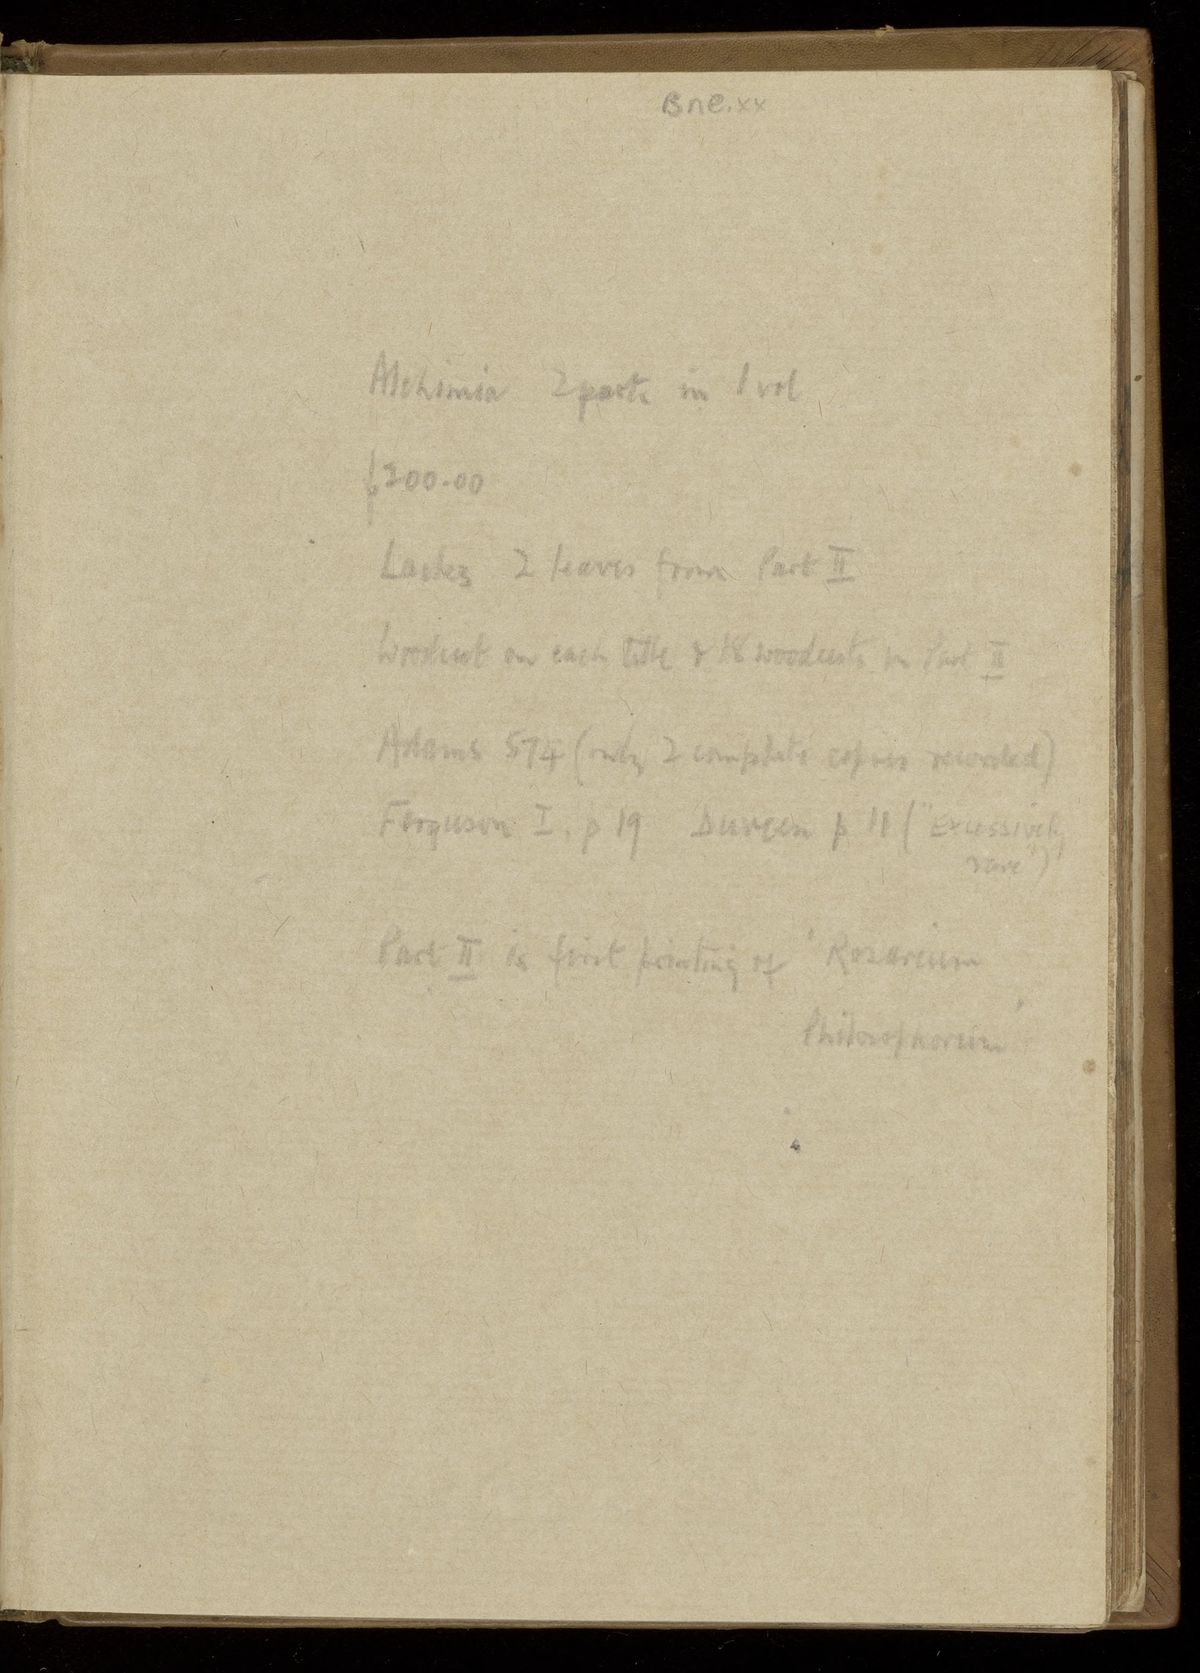 Bne.xx
Alchimia 2 parts in 1 vol
£200.00
Lacks 2 leaves from Part II
Woodcut on each title & 18 woodcuts in Part II
Adams 574 (only 2 complete copies recorded)
Ferguson I, p 19 Duveen p 11 ("Excessively
rare")
Part II is first printing of 'Rosarium
Philosophorum'